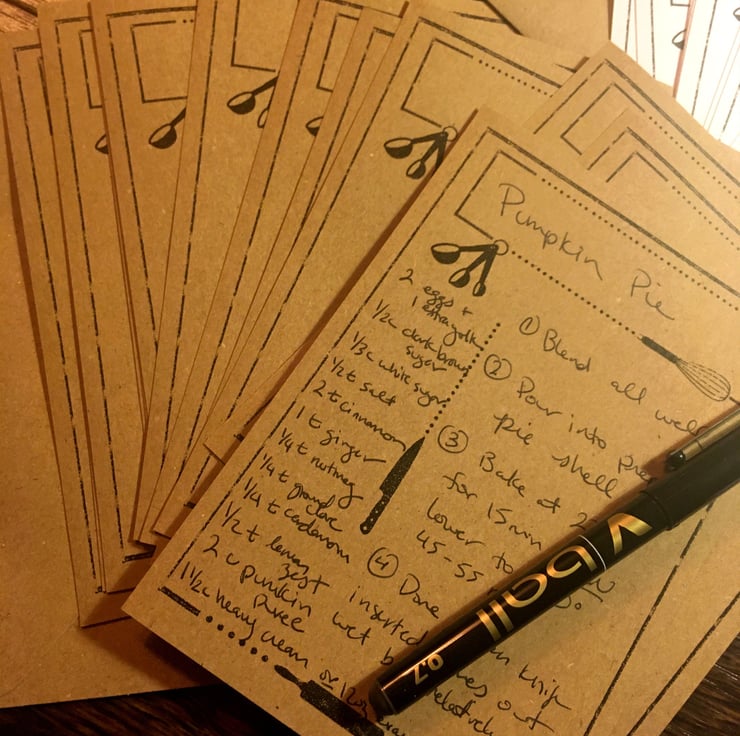 Pumpkin Pie
2 eggs +
1 extra yolk
1/2 c dark brown
sugar
1/3 c white sugar
1/2 t salt
2 t cinnamon
1 t ginger
1/4 t nutmeg
1/4 t ground
clove
1/4 t cardamom
1/2 t lemon
zest
2 c pumpkin
puree
1 1/2 c heavy cream or 12 oz
① Blend all well
② Pour into
pie shell
③ Bake at
for 15 min
lower to
45-55
④ Done
inserted knife
wet out
relatively
V ball
0.7